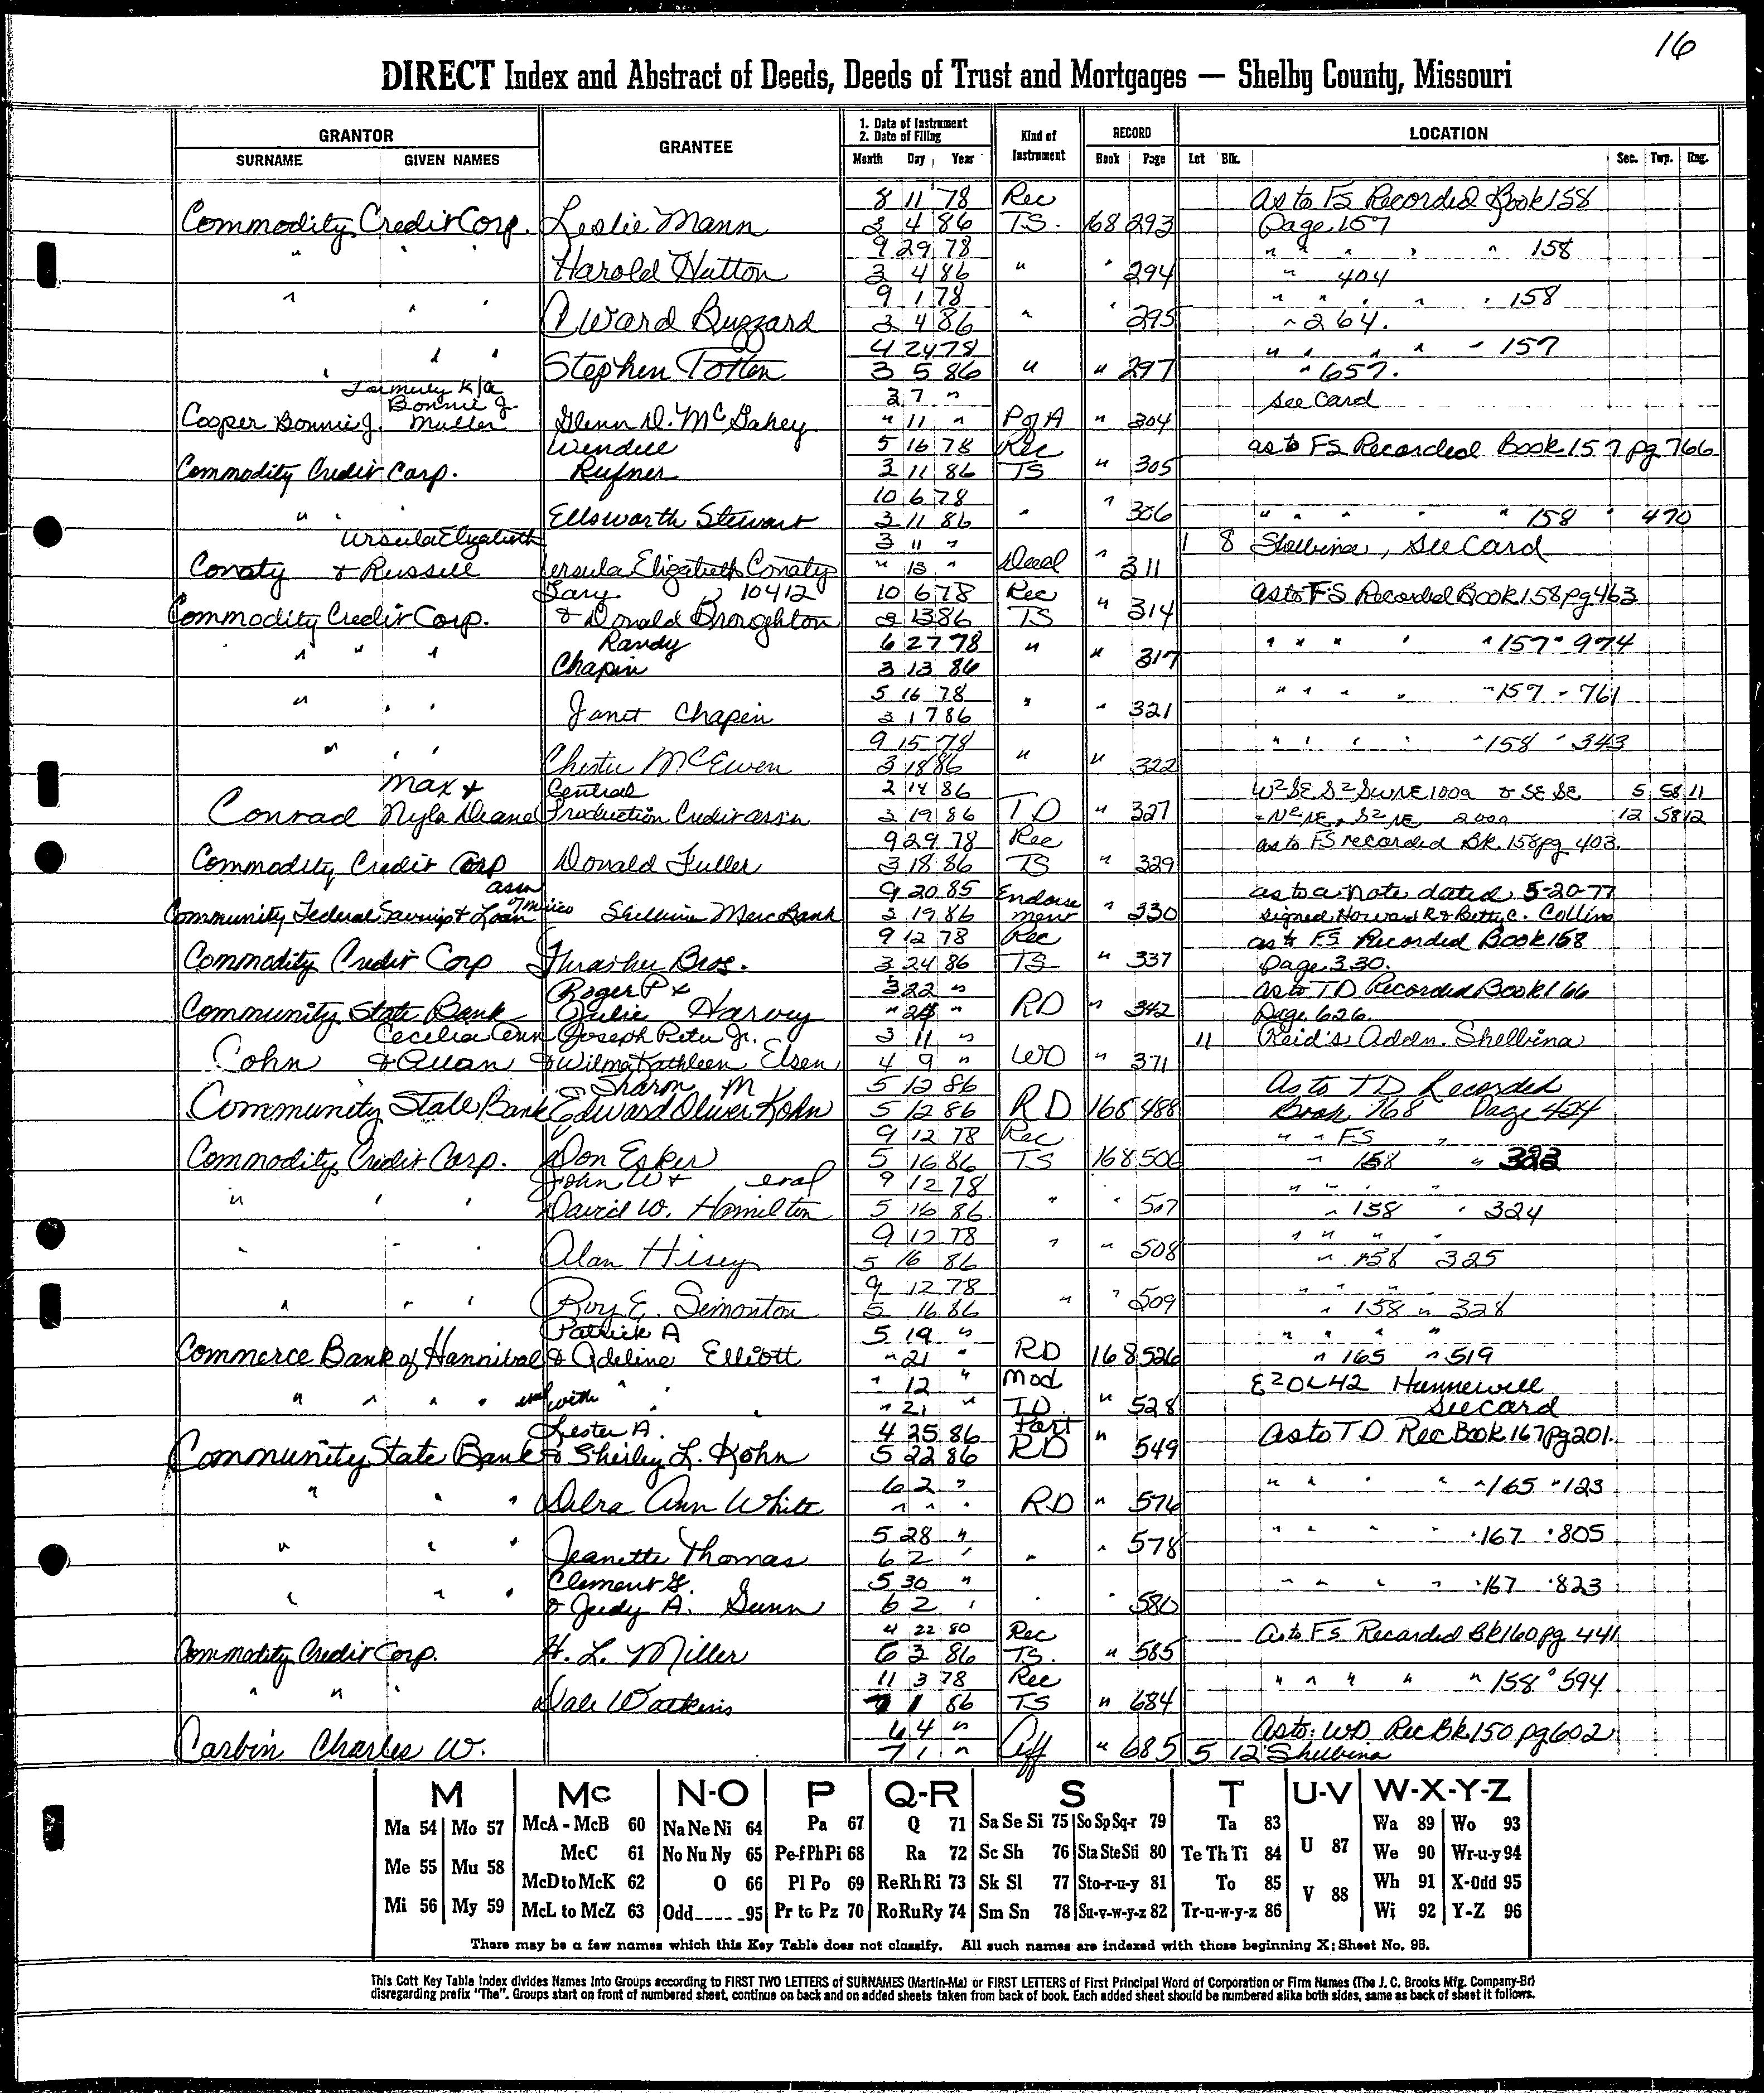 16
DIRECT Index and Abstract of Deeds, Deeds of Trust and Mortgages — Shelby County, Missouri
GRANTOR GRANTEE 1. Date of Instrument 2. Date of Filing Kind of Instrument RECORD LOCATION
SURNAME GIVEN NAMES Month Day Year Book Page Lot Blk. Sec. Twp. Rng.
8 11 78 Rec As to FS Recorded Book 158
Commodity Credit Corp. Leslie Mann 3 4 86 T.S. 168 293 Page 157
9 29 78 " " " " " 158
" " " Harold Hutton 3 4 86 " " 294 " 404
9 1 78 " " " " " 158
" " " Ward Buzzard 3 4 86 " " 295 " 264.
4 24 78 " " " " " 157
" " " Stephen Totten 3 5 86 " " 297 " 657.
Formerly K/A Bonnie J. 3 7 " See Card
Cooper Bonnie J. Muller Glenn D. McGahey " 11 " P of A " 304
Wendell 5 16 78 Rec as to FS Recorded Book 157 pg 766
Commodity Credit Corp. Rufner 3 11 86 TS " 305
10 6 78
" " " Ellsworth Stewart 3 11 86 " " 306 " " " " " 158 " 470
Ursula Elizabeth 3 11 " 1 8 Shelbina, See Card
Conaty & Russell Ursula Elizabeth Conaty " 13 " Deed " 311
Gary 10412 10 6 78 Rec as to FS Recorded Book 158 pg 463
Commodity Credit Corp. & Donald Broughton 3 13 86 TS " 314
Randy 6 27 78 " " " " " " " 157 " 974
" " " Chapin 3 13 86 317
5 16 78 " " " " " 157 " 761
" " " Janet Chapin 3 17 86 " " 321
9 15 78 " " " " " 158 " 343
" " " Chester McEwen 3 18 86 " " 322
Max & Central 2 14 86 W2 SE S2 SWNE 100a & SE SE 5 58 11
Conrad Nyla Deane Production Credit Assn 3 19 86 TD " 327 & N2 NE & S2 NE 200a 12 58 12
9 29 78 Rec as to FS recorded Bk 158 pg 403.
Commodity Credit Corp Donald Fuller 3 18 86 TS " 329
assn of Mexico 9 20 85 Endorse as to a note dated 5-20-77
Community Federal Savings & Loan Shelbina Merc Bank 3 19 86 ment " 330 signed Howard R & Betty C. Collins
9 12 78 Rec as to F.S Recorded Book 158
Commodity Credit Corp Thrasher Bros. 3 24 86 TS " 337 Page 330.
Roger P & 3 22 " as to TD Recorded Book 166
Community State Bank Julie Harvey " 24 " RD " 342 Page 626.
Cecelia Ann Joseph Peter Jr. 3 11 " 11 Reid's Addn. Shelbina
Cohn & Allan & Wilma Kathleen Elsen 4 9 " WD " 371
Sharon M 5 12 86 As to TD Recorded
Community State Bank Edward Oliver Kohn 5 12 86 RD 168 488 Book 168 Page 424
9 12 78 Rec " " FS "
Commodity Credit Corp. Don Esker 5 16 86 TS 168 506 " 158 " 323
John W & eval 9 12 78 " " " "
" " " David W. Hamilton 5 16 86 " " 507 " 158 " 324
9 12 78 " " " "
" " " Alan Hisey 5 16 86 " " 508 " 158 325
9 12 78 " " "
" " " Roy E. Simonton 5 16 86 " " 509 " 158 " 328
Patrick A 5 19 " " " " "
Commerce Bank of Hannibal & Adeline Elliott " 21 " RD 168 526 " 165 " 519
" 12 " Mod E2 OL 42 Hunnewell
" " " " with " " " 21 " TD. " 528 See card
Lester A. 4 25 86 Part As to TD Rec Book 167 pg 201.
Community State Bank & Shirley L. Kohn 5 22 86 RD " 549
6 2 " " " " " " 165 " 123
" " " Debra Ann White " " " RD " 576
5 28 " " " " " " 167 " 805
" " " Jeanette Thomas 6 2 " " " 578
Clement G. 5 30 " " " " " " 167 " 823
" " " & Judy A. Gunn 6 2 " " " 580
4 22 80 Rec As to FS Recorded Bk 160 pg 441
Commodity Credit Corp. H. L. Miller 6 3 86 TS. " 585
11 3 78 Rec " " " " " 158 " 594
" " " Dale Watkins 7 1 86 TS " 684
6 4 " As to: WD. Rec Bk 150 pg 602
Corbin Charles W. 7 1 " Aff " 685 5 12 Shelbina
M Mc N-O P Q-R S T U-V W-X-Y-Z
Ma 54 Mo 57 McA - McB 60 Na Ne Ni 64 Pa 67 Q 71 Sa Se Si 75 So Sp Sq-r 79 Ta 83 Wa 89 Wo 93
Me 55 Mu 58 McC 61 No Nu Ny 65 Pe-f Ph Pi 68 Ra 72 Sc Sh 76 Sta Ste Sti 80 Te Th Ti 84 U 87 We 90 Wr-u-y 94
McD to McK 62 O 66 Pl Po 69 Re Rh Ri 73 Sk Sl 77 Sto-r-u-y 81 To 85 V 88 Wh 91 X-Odd 95
Mi 56 My 59 McL to McZ 63 Odd---- -95 Pr to Pz 70 Ro Ru Ry 74 Sm Sn 78 Su-v-w-y-z 82 Tr-u-w-y-z 86 Wi 92 Y-Z 96
There may be a few names which this Key Table does not classify. All such names are indexed with those beginning X; Sheet No. 95.
This Cott Key Table Index divides Names Into Groups according to FIRST TWO LETTERS of SURNAMES (Martin-Ma) or FIRST LETTERS of First Principal Word of Corporation or Firm Names (The J. C. Brooks Mfg. Company-Br)
disregarding prefix "The". Groups start on front of numbered sheet, continue on back and on added sheets taken from back of book. Each added sheet should be numbered alike both sides, same as back of sheet it follows.